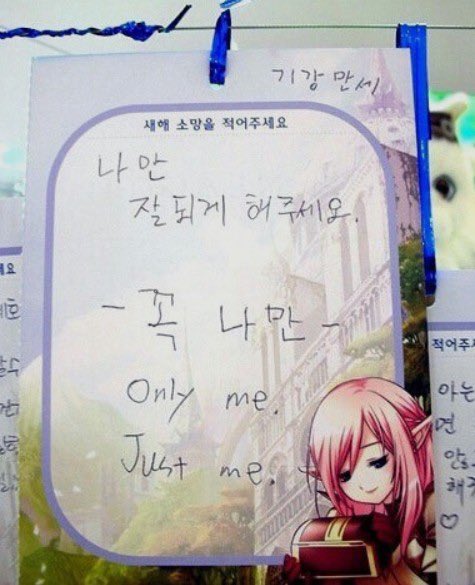 기강만세
새해 소망을 적어주세요
나만
잘되게 해주세요.
- 꼭 나만 -
Only me.
Just me.
적어주
아는
면
해주
♡